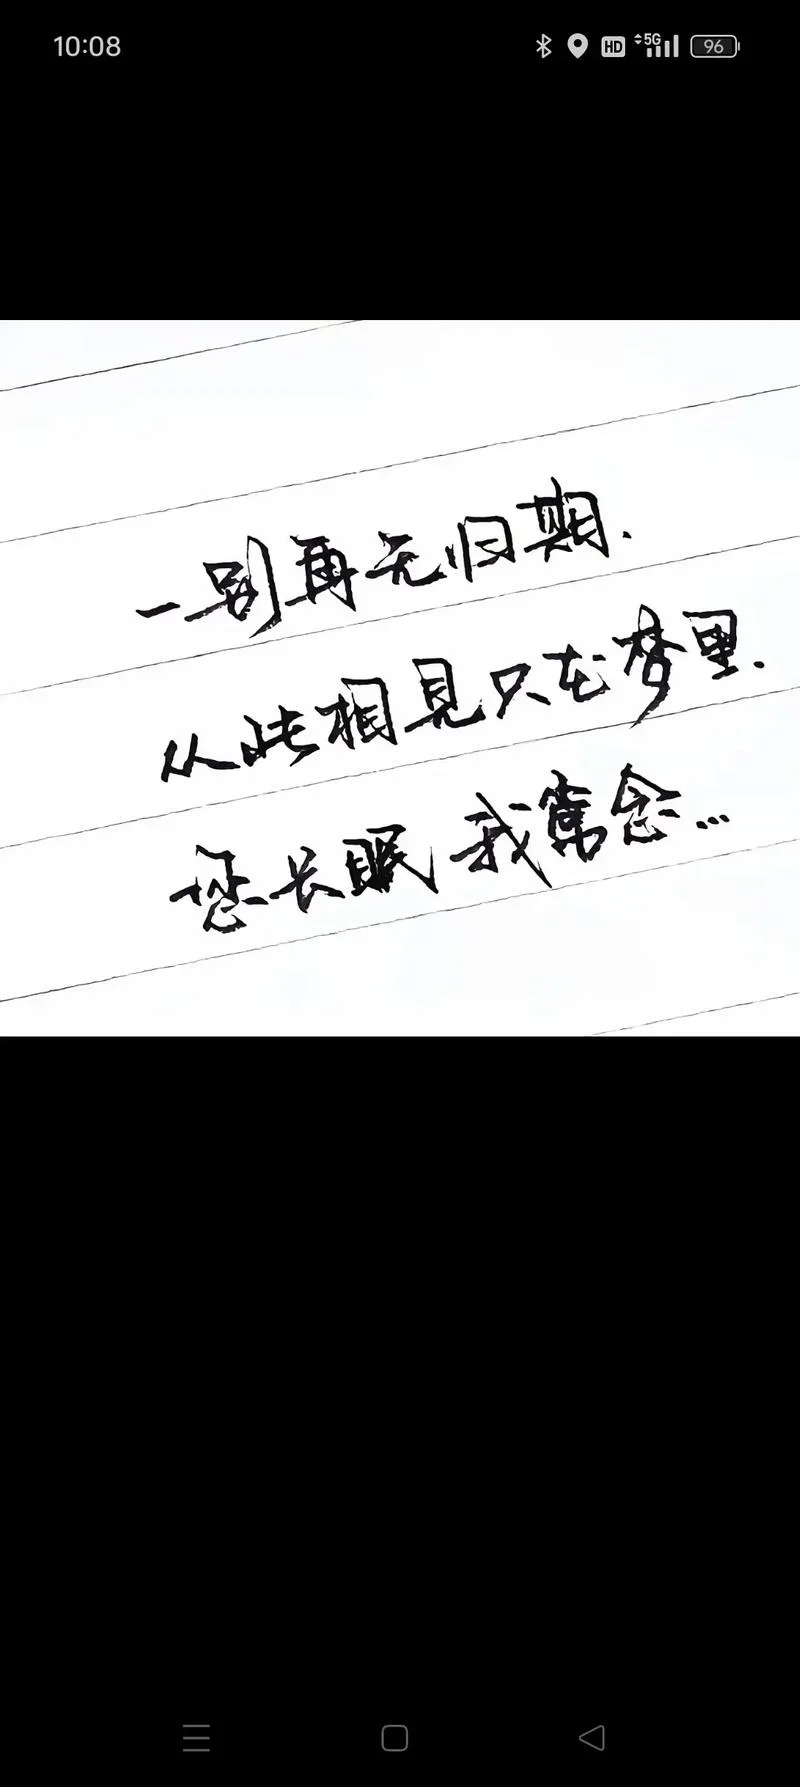 10:08 HD 5G 96
一别再无归期.
从此相见只在梦里.
您长眠 我常念...